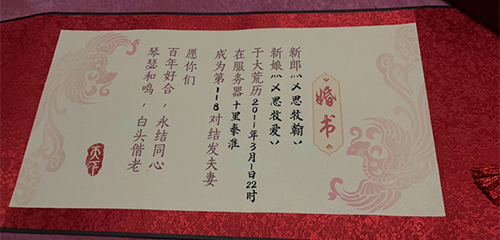 婚书
新郎灬乂思牧翰灬
新娘灬乂思牧爱灬
于大荒历2011年3月1日22时
在服务器十里秦淮
成为第118对结发夫妻
愿你们
百年好合，永结同心
琴瑟和鸣，白头偕老
天下